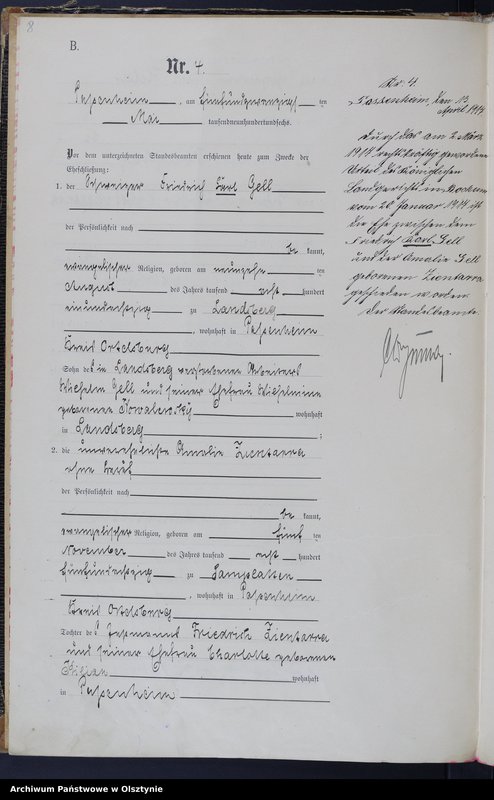 8
B.
Nr. 4.
Passenheim, am fünfundzwanzigsten
Mai tausendneunhundertundsechs.
Vor dem unterzeichneten Standesbeamten erschienen heute zum Zwecke der
Eheschließung:
1. der Schweizer Friedrich Karl Gell
der Persönlichkeit nach
be kannt,
evangelischer Religion, geboren am neunzehnten
August des Jahres tausend acht hundert
einundachtzig zu Landsberg
, wohnhaft in Passenheim
Kreis Ortelsburg
Sohn des in Landsberg verstorbenen Arbeiters
Wilhelm Gell und seiner Ehefrau Wilhelmine
geborenen Kowalewsky wohnhaft
in Landsberg ;
2. die unverehelichte Amalie Zientarra
ohne Beruf
der Persönlichkeit nach
be kannt,
evangelischer Religion, geboren am fünf ten
November des Jahres tausend acht hundert
fünfundachtzig zu Samplatten
, wohnhaft in Passenheim
Kreis Ortelsburg
Tochter des Friedrich Zientarra
und seiner Ehefrau Charlotte geborenen
wohnhaft
in Passenheim
Nr. 4.
Passenheim, den 13.
April 1914
Durch das am 2. März
1914 rechtskräftig gewordene
Urteil des Königlichen
Landgerichts in
vom 20. Januar 1914 ist
die Ehe zwischen dem
Friedrich Karl Gell
und der Amalie Gell
geborenen Zientarra
geschieden worden.
Der Standesbeamte.
Archiwum Państwowe w Olsztynie